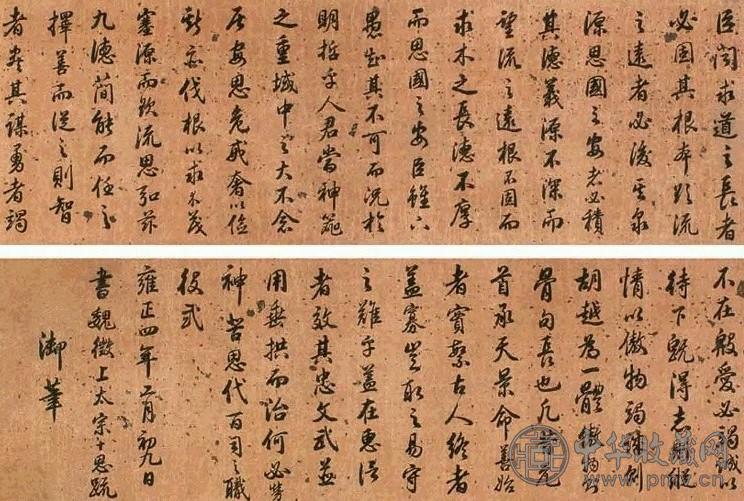 臣聞求道之長者
必固其根本欲流
之遠者必浚其泉
源思國之安者必積
其德義源不深而
望流之遠根不固而
求木之長德不厚
而思國之安臣雖下
愚知其不可而況於
明哲乎人君當神器
之重域中之大不念
居安思危戒奢以儉
斯亦伐根以求木茂
塞源而欲流思弘茲
九德簡能而任之
擇善而從之則智
者盡其謀勇者竭
不在殷憂必竭誠以
待下既得志縱
情以傲物竭誠則
胡越為一體傲物則
骨肉長也凡百元
首承天景命善始
者實繁 終者
蓋寡豈取之易守
之難乎蓋在
者效其忠文武並
用垂拱而治何必勞
神苦思代百司之職
役哉
雍正四年二月初九日
書魏徵上太宗十思疏
御筆
中华收藏网